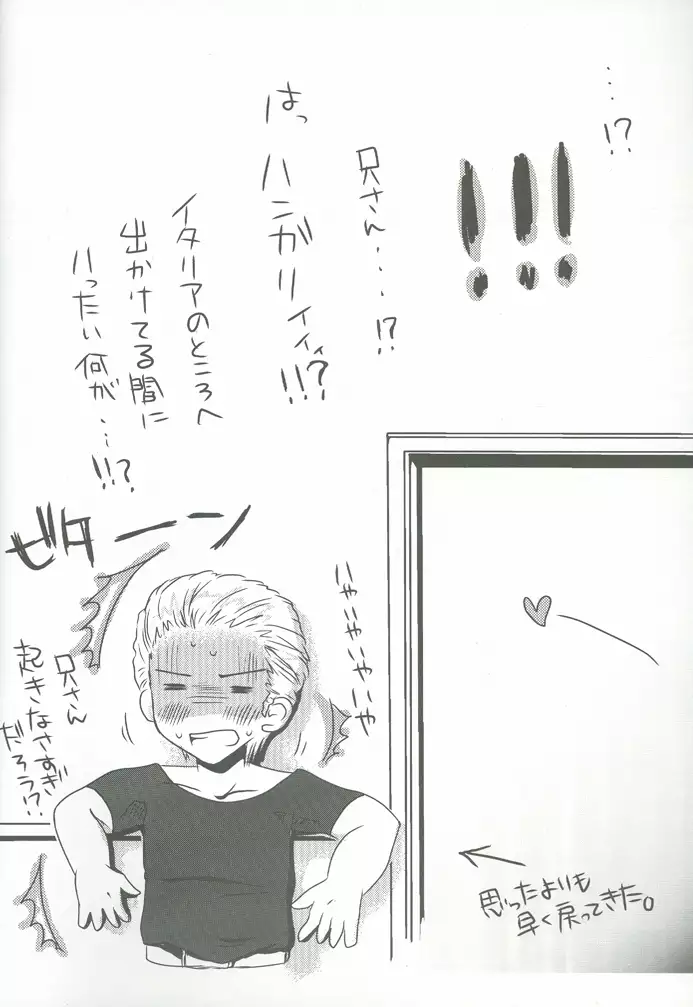 …!?
!!!
兄さん…!?
はっ
ハンガリィィィ!!?
イタリアのところへ
出かけてる間に
いったい何が…!!?
ビターーン
いやいやいやいや
兄さん
起きなさすぎ
だろう!?
思ったよりも
早く戻ってきた。